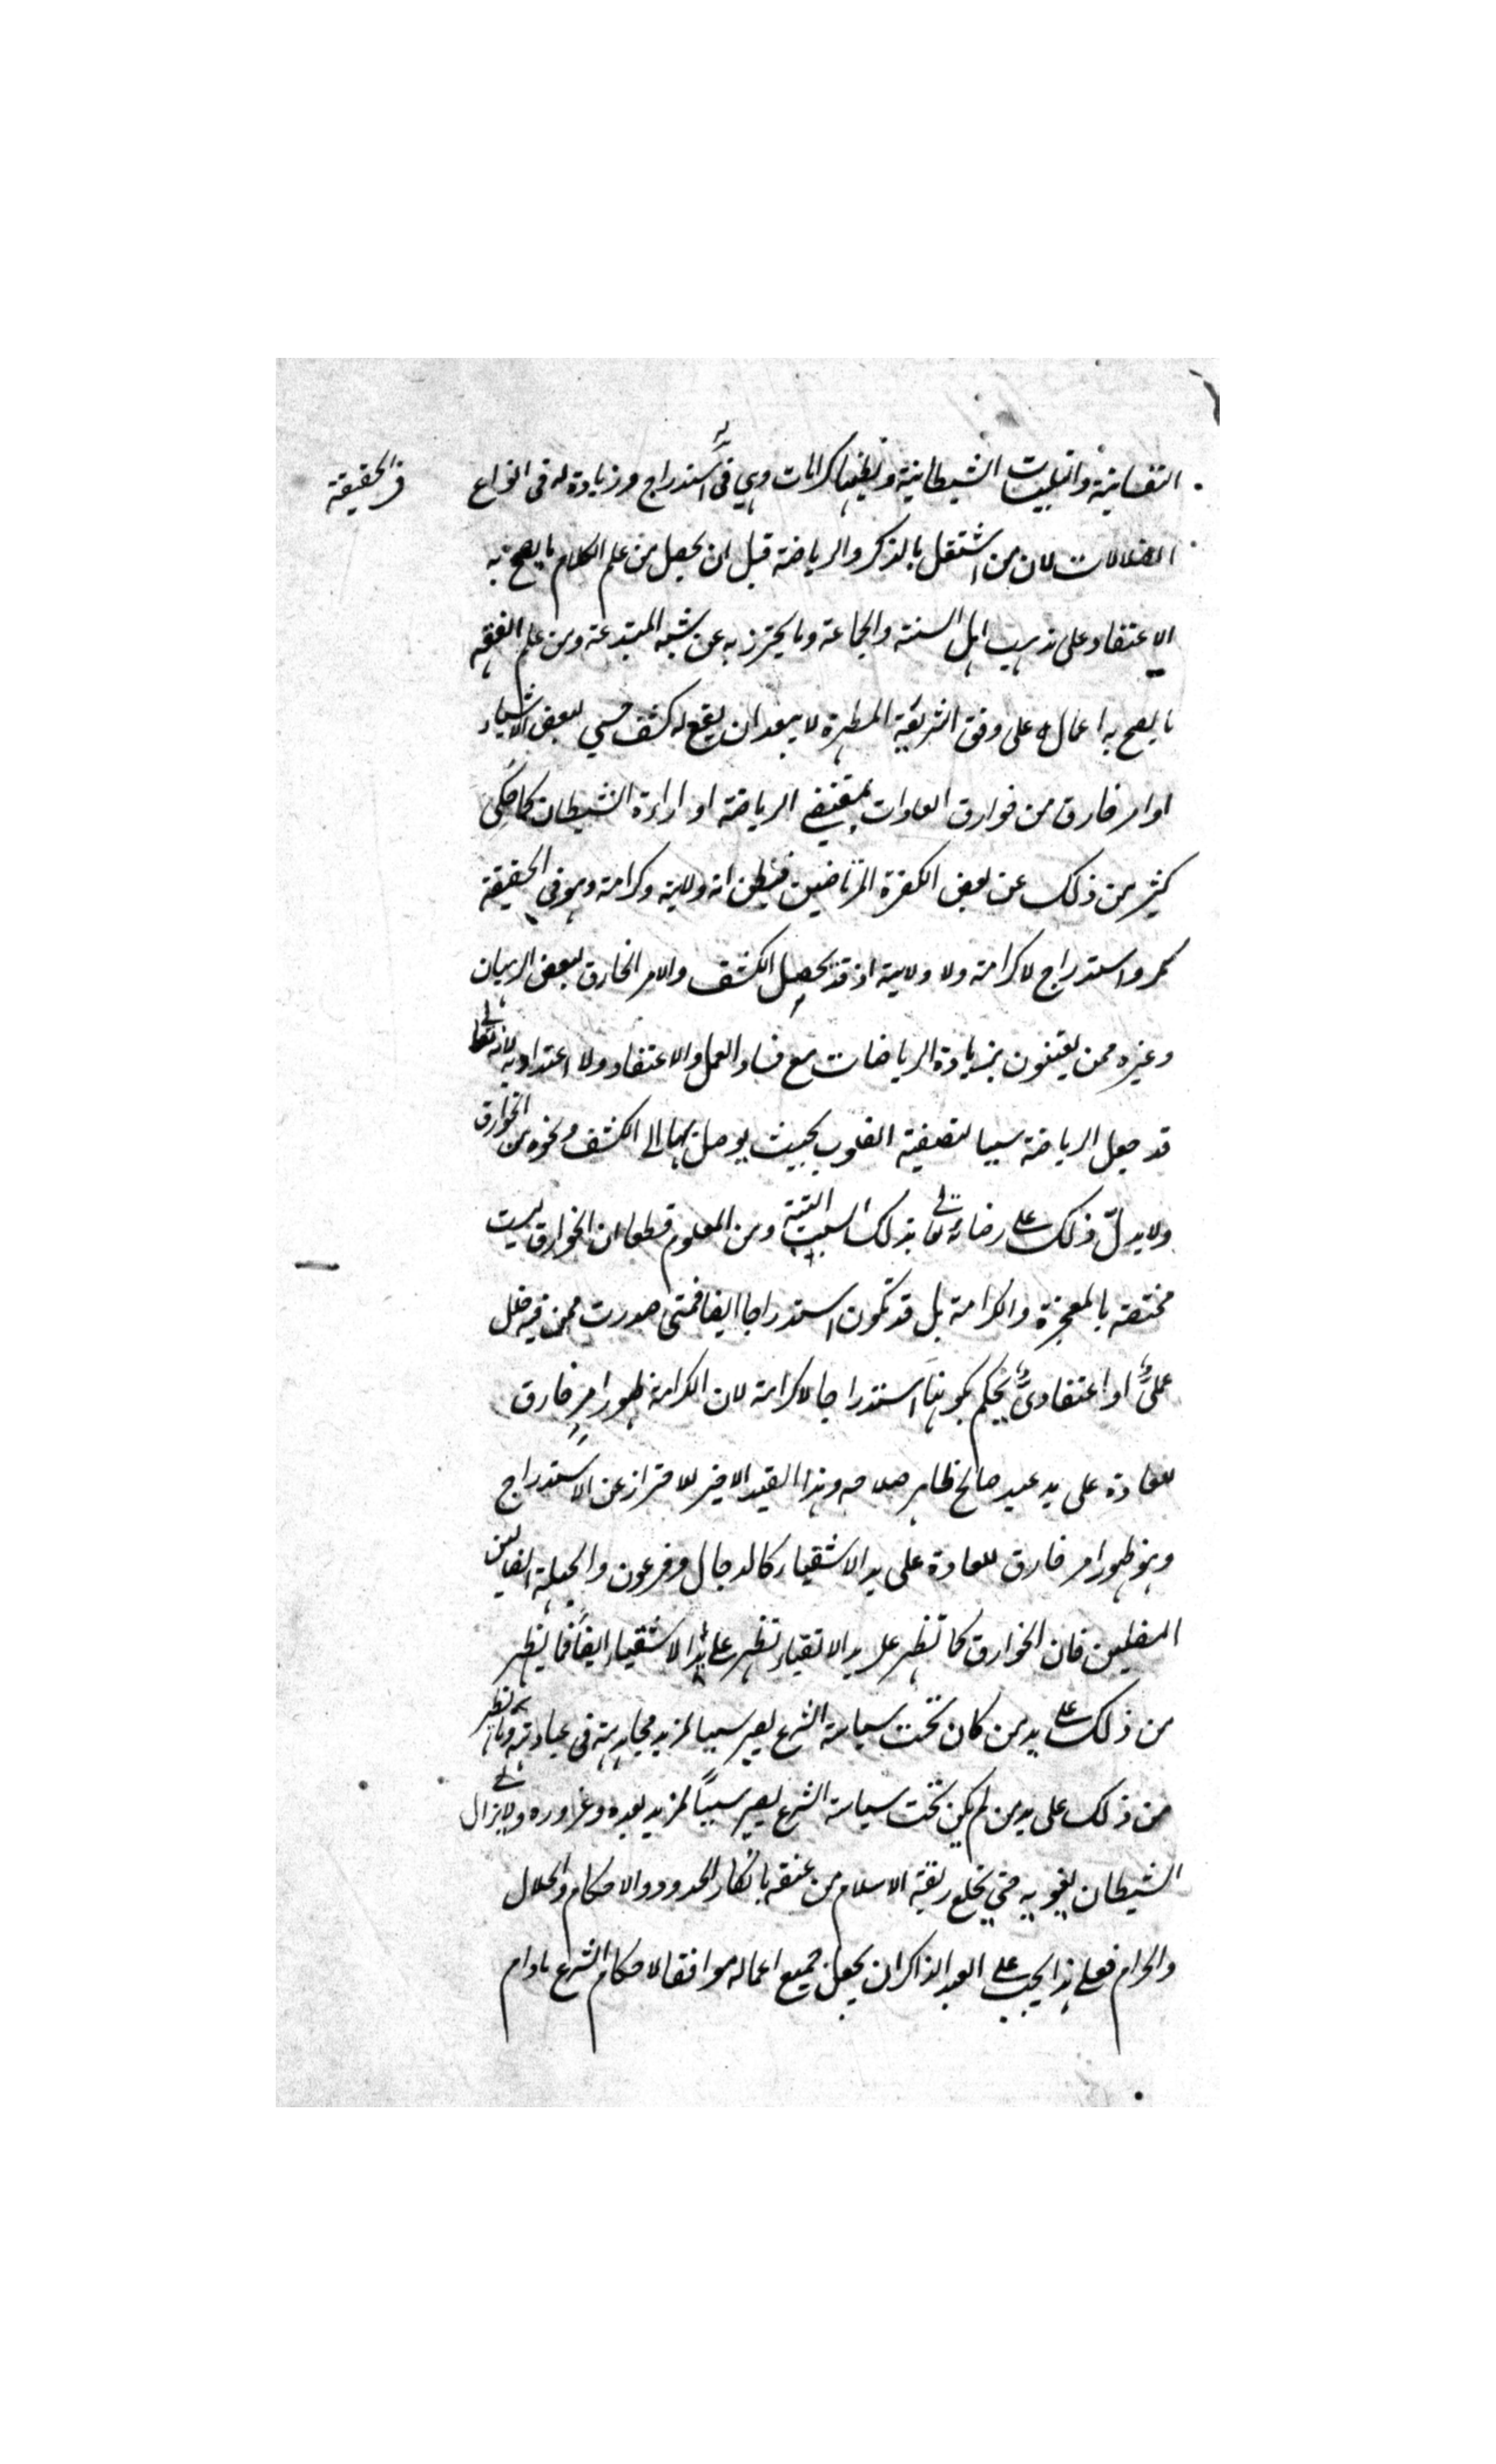 النفسانية والتلبيسات الشيطانية ويظنها كرامات وهي فى استدراج وزيادة له فى انواع
فى الحقيقة
الضلالات لان من اشتغل بالذكر والرياضة قبل ان يحصل من علم الكلام ما يصح به
الاعتقاد على مذهب اهل السنة والجماعة وما يحترز به عن شبه المبتدعة ومن علم الفقه
ما يصح به اعماله على وفق الشريعة المطهرة لا يبعد ان يقع له كشف حسي لبعض الاشياء
او امر خارق من خوارق العادات بمقتضى الرياضة او اراءة الشيطان كما حكى
كثير من ذلك عن بعض الكفرة المرتاضين فيظن انه ولاية وكرامة وهو فى الحقيقة
مكر واستدراج لا كرامة ولا ولاية اذ قد يحصل الكشف والامر الخارق لبعض الرهبان
وغيره ممن يعتنون بزيادة الرياضات مع فساد العمل والاعتقاد ولا اعتداد به لانه تعالى
قد جعل الرياضة سببا لتصفية القلوب بحيث يوصل بها الى الكشف ونحوه من الخوارق
ولا يدلّ ذلك على رضائه تعالى بذلك السبب البتة ومن المعلوم قطعا ان الخوارق ليست
مختصة بالمعجزة والكرامة بل قد تكون استدراجا ايضا فمتى صدرت ممن فيه خلل
عمليٌّ او اعتقاديٌّ يحكم بكونها استدراجا لا كرامة لان الكرامة ظهور امرٍ خارق
للعادة على يد عبد صالح ظاهر صلاحه وهذا القيد الاخير للاحتراز عن الاستدراج
وهو ظهور امر خارق للعادة على يد الاشقياء كالدجال وفرعون والجهلة الضالين
المضلين فان الخوارق كما تظهر على يد الاتقياء تظهر على يد الاشقياء ايضا فما يظهر
من ذلك على يد من كان تحت سياسة الشرع يصير سببا لمزيد مجاهدته فى عبادته وما يظهر
من ذلك على يد من لم يكن تحت سياسة الشرع يصير سببًا لمزيد بعده وغروره ولا يزال
الشيطان يغويه حتى يخلع ربقة الاسلام من عنقه بانكار الحدود والاحكام والحلال
والحرام فعلى هذا يجب على العبد الذاكر ان يجعل جميع اعماله موافقا لاحكام الشرع مادام